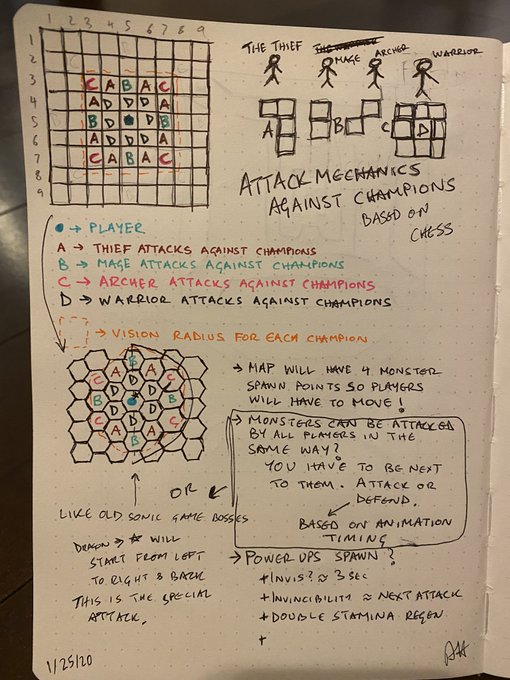 1 2 3 4 5 6 7 8 9
1
2
3 C A B A C
4 A D D D A
5 B D D B
6 A D D D A
7 C A B A C
8
9
THE THIEF
MAGE
ARCHER
WARRIOR
A B C D
ATTACK MECHANICS
AGAINST CHAMPIONS
BASED ON
CHESS
→ PLAYER
A → THIEF ATTACKS AGAINST CHAMPIONS
B → MAGE ATTACKS AGAINST CHAMPIONS
C → ARCHER ATTACKS AGAINST CHAMPIONS
D → WARRIOR ATTACKS AGAINST CHAMPIONS
→ VISION RADIUS FOR EACH CHAMPION
B
A A
C D C
D D
B B
D D
C D C
A A
B
→ MAP WILL HAVE 4 MONSTER
SPAWN POINTS SO PLAYERS
WILL HAVE TO MOVE!
→ MONSTERS CAN BE ATTACKED
BY ALL PLAYERS IN THE
SAME WAY?
YOU HAVE TO BE NEXT
TO THEM. ATTACK OR
DEFEND.
BASED ON ANIMATION
TIMING
OR
LIKE OLD SONIC GAME BOSSES
DRAGON → ☆ WILL
START FROM LEFT
TO RIGHT & BACK
THIS IS THE SPECIAL
ATTACK.
→ POWER UPS SPAWN?
+ INVIS? ≈ 3 SEC
+ INVINCIBILITY ≈ NEXT ATTACK
+ DOUBLE STAMINA REGEN
+
1/25/20